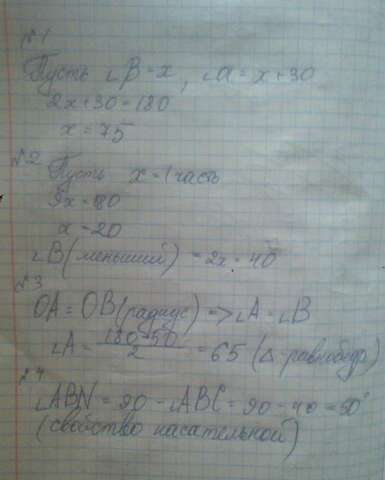 №1
Пусть ∠B=x, ∠α=x+30
2x+30=180
x=75
№2 Пусть x=1часть
9x=180
x=20
∠B(меньший)=2x=40
№3
OA=OB(радиус)=>∠A=∠B
∠A=(180-50)/2=65 (△-равнобедр)
№4
∠ABN=90-∠ABC=90-40=50°
(свойство касательной)